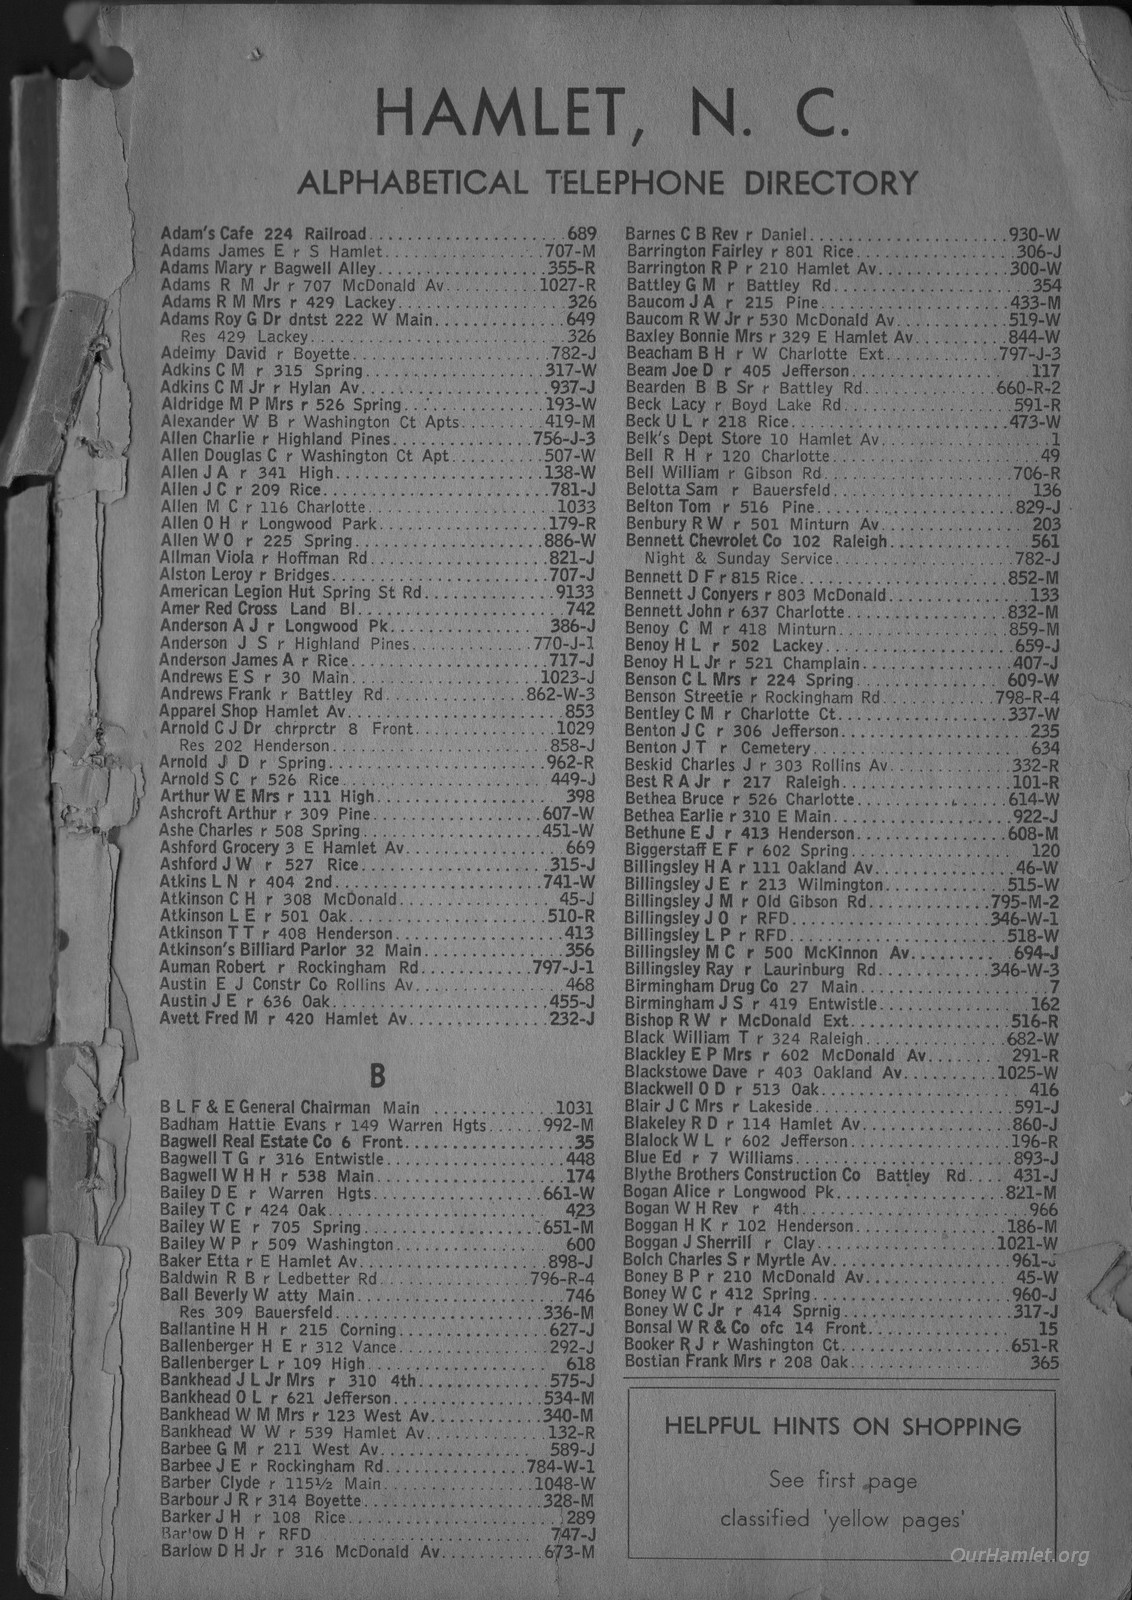 HAMLET, N. C.
ALPHABETICAL TELEPHONE DIRECTORY
Adam's Cafe 224 Railroad....................689
Adams James E r S Hamlet................707-M
Adams Mary r Bagwell Alley................355-R
Adams R M Jr r 707 McDonald Av.........1027-R
Adams R M Mrs r 429 Lackey................326
Adams Roy G Dr dntst 222 W Main............649
Res 429 Lackey.........................326
Adeimy David r Boyette...................782-J
Adkins C M r 315 Spring..................317-W
Adkins C M Jr r Hylan Av.................937-J
Aldridge M P Mrs r 526 Spring.............193-W
Alexander W B r Washington Ct Apts........419-M
Allen Charlie r Highland Pines............756-J-3
Allen Douglas C r Washington Ct Apt.......507-W
Allen J A r 341 High....................138-W
Allen J C r 209 Rice....................781-J
Allen M C r 116 Charlotte.................1033
Allen O H r Longwood Park................179-R
Allen W O r 225 Spring...................886-W
Allman Viola r Hoffman Rd................821-J
Alston Leroy r Bridges...................707-J
American Legion Hut Spring St Rd...........9133
Amer Red Cross Land Bl...................742
Anderson A J r Longwood Pk...............386-J
Anderson J S r Highland Pines............770-J-1
Anderson James A r Rice..................717-J
Andrews E S r 30 Main...................1023-J
Andrews Frank r Battley Rd..............862-W-3
Apparel Shop Hamlet Av...................853
Arnold C J Dr chrprctr 8 Front............1029
Res 202 Henderson.....................858-J
Arnold J D r Spring.....................962-R
Arnold S C r 526 Rice...................449-J
Arthur W E Mrs r 111 High................398
Ashcroft Arthur r 309 Pine...............607-W
Ashe Charles r 508 Spring................451-W
Ashford Grocery 3 E Hamlet Av.............669
Ashford J W r 527 Rice..................315-J
Atkins L N r 404 2nd....................741-W
Atkinson C H r 308 McDonald..............45-J
Atkinson L E r 501 Oak..................510-R
Atkinson T T r 408 Henderson..............413
Atkinson's Billiard Parlor 32 Main........356
Auman Robert r Rockingham Rd............797-J-1
Austin E J Constr Co Rollins Av...........468
Austin J E r 636 Oak....................455-J
Avett Fred M r 420 Hamlet Av.............232-J
B
B L F & E General Chairman Main ............1031
Badham Hattie Evans r 149 Warren Hgts......992-M
Bagwell Real Estate Co 6 Front..............35
Bagwell T G r 316 Entwistle................448
Bagwell W H H r 538 Main.................174
Bailey D E r Warren Hgts................661-W
Bailey T C r 424 Oak.....................423
Bailey W E r 705 Spring.................651-M
Bailey W P r 509 Washington...............600
Baker Etta r E Hamlet Av................898-J
Baldwin R B r Ledbetter Rd..............796-R-4
Ball Beverly W atty Main..................746
Res 309 Bauersfeld....................336-M
Ballantine H H r 215 Corning.............627-J
Ballenberger H E r 312 Vance.............292-J
Ballenberger L r 109 High................618
Bankhead J L Jr Mrs r 310 4th............575-J
Bankhead O L r 621 Jefferson.............534-M
Bankhead W M Mrs r 123 West Av...........340-M
Bankhead W W r 539 Hamlet Av.............132-R
Barbee G M r 211 West Av................589-J
Barbee J E r Rockingham Rd..............784-W-1
Barber Clyde r 115½ Main...............1048-W
Barbour J R r 314 Boyette................328-M
Barker J H r 108 Rice....................289
Barlow D H r RFD .....................747-J
Barlow D H Jr r 316 McDonald Av..........673-M
Barnes C B Rev r Daniel..................930-W
Barrington Fairley r 801 Rice.............306-J
Barrington R P r 210 Hamlet Av............300-W
Battley G M r Battley Rd..................354
Baucom J A r 215 Pine...................433-M
Baucom R W Jr r 530 McDonald Av..........519-W
Baxley Bonnie Mrs r 329 E Hamlet Av.......844-W
Beacham B H r W Charlotte Ext...........797-J-3
Beam Joe D r 405 Jefferson................117
Bearden B B Sr r Battley Rd.............660-R-2
Beck Lacy r Boyd Lake Rd................591-R
Beck U L r 218 Rice....................473-W
Belk's Dept Store 10 Hamlet Av...............1
Bell R H r 120 Charlotte...................49
Bell William r Gibson Rd................706-R
Belotta Sam r Bauersfeld.................136
Belton Tom r 516 Pine..................829-J
Benbury R W r 501 Minturn Av.............203
Bennett Chevrolet Co 102 Raleigh...........561
Night & Sunday Service................782-J
Bennett D F r 815 Rice..................852-M
Bennett J Conyers r 803 McDonald...........133
Bennett John r 637 Charlotte.............832-M
Benoy C M r 418 Minturn................859-M
Benoy H L r 502 Lackey.................659-J
Benoy H L Jr r 521 Champlain............407-J
Benson C L Mrs r 224 Spring.............609-W
Benson Streetie r Rockingham Rd.........798-R-4
Bentley C M r Charlotte Ct..............337-W
Benton J C r 306 Jefferson................235
Benton J T r Cemetery....................634
Beskid Charles J r 303 Rollins Av.........332-R
Best R A Jr r 217 Raleigh...............101-R
Bethea Bruce r 526 Charlotte............614-W
Bethea Earlie r 310 E Main..............922-J
Bethune E J r 413 Henderson.............608-M
Biggerstaff E F r 602 Spring..............120
Billingsley H A r 111 Oakland Av..........46-W
Billingsley J E r 213 Wilmington.........515-W
Billingsley J M r Old Gibson Rd.........795-M-2
Billingsley J O r RFD.................346-W-1
Billingsley L P r RFD..................518-W
Billingsley M C r 500 McKinnon Av........694-J
Billingsley Ray r Laurinburg Rd........346-W-3
Birmingham Drug Co 27 Main.................7
Birmingham J S r 419 Entwistle............162
Bishop R W r McDonald Ext..............516-R
Black William T r 324 Raleigh...........682-W
Blackley E P Mrs r 602 McDonald Av.......291-R
Blackstowe Dave r 403 Oakland Av.......1025-W
Blackwell O D r 513 Oak..................416
Blair J C Mrs r Lakeside................591-J
Blakeley R D r 114 Hamlet Av............860-J
Blalock W L r 602 Jefferson.............196-R
Blue Ed r 7 Williams...................893-J
Blythe Brothers Construction Co Battley Rd....431-J
Bogan Alice r Longwood Pk..............821-M
Bogan W H Rev r 4th.....................966
Boggan H K r 102 Henderson.............186-M
Boggan J Sherrill r Clay..............1021-W
Bolch Charles S r Myrtle Av.............961-J
Boney B P r 210 McDonald Av.............45-W
Boney W C r 412 Spring.................960-J
Boney W C Jr r 414 Sprnig...............317-J
Bonsal W R & Co ofc 14 Front................15
Booker R J r Washington Ct..............651-R
Bostian Frank Mrs r 208 Oak...............365
HELPFUL HINTS ON SHOPPING
See first page
classified 'yellow pages'
OurHamlet.org